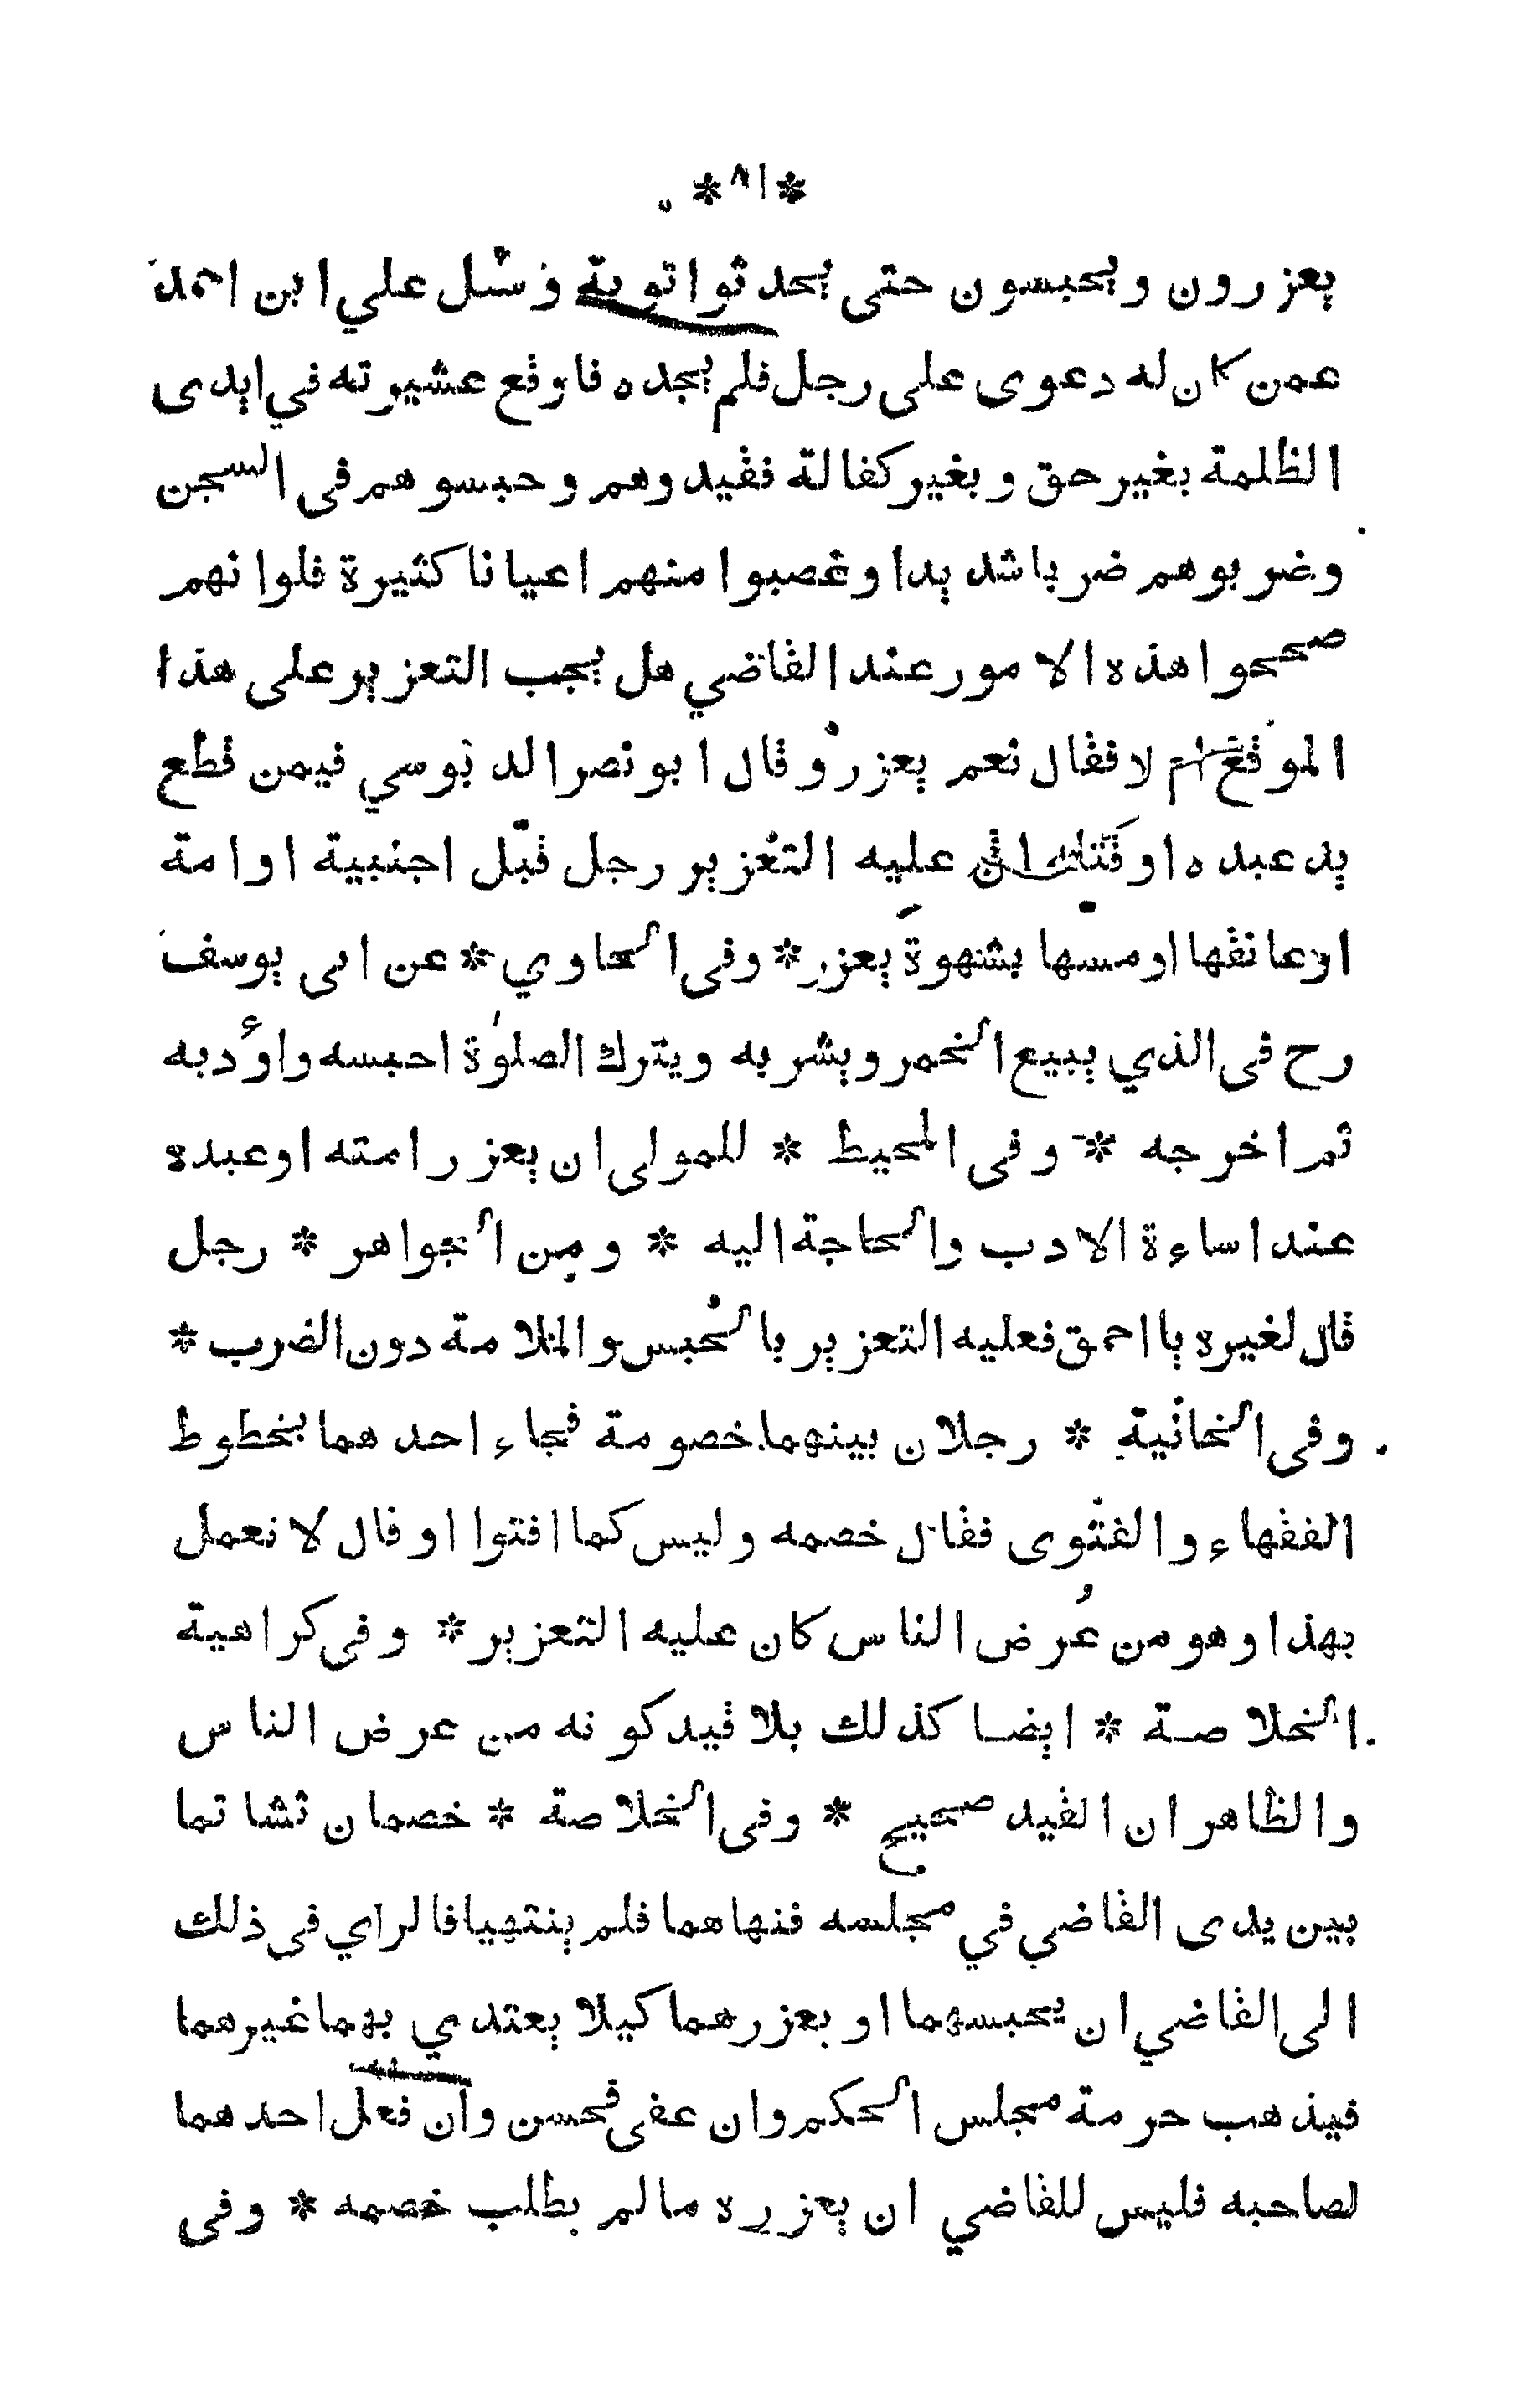 *٨١*
يعزرون ويحبسون حتى يحدثوا توبة وسئل علي ابن احمد
عمن كان له دعوى على رجل فلم يجده فاوقع عشيرته في ايدى
الظلمة بغير حق وبغير كفالة فقيدوهم وحبسوهم فى السجن
وضربوهم ضربا شديدا وغصبوا منهم اعيانا كثيرة فلوانهم
صححوا هذه الامور عند القاضي هل يجب التعزير على هذا
الموقع ام لا فقال نعم يعزر وقال ابو نصر الدبوسي فيمن قطع
يد عبده او قتله عليه التعزير رجل قبل اجنبية او امة
اوعانقها اومسها بشهوة يعزر * وفى الحاوي * عن ابى يوسف
رح فى الذي يبيع الخمر ويشربه ويترك الصلوة احبسه واؤدبه
ثم اخرجه * وفى المحيط * للمولى ان يعزر امته اوعبده
عند اساءة الادب والحاجة اليه * ومن الجواهر * رجل
قال لغيره يا احمق فعليه التعزير بالحبس والملامة دون الضرب *
وفى الخانية * رجلان بينهما خصومة فجاء احدهما بخطوط
الفقهاء والفتوى فقال خصمه وليس كما افتوا اوقال لا نعمل
بهذا وهو من عُرض الناس كان عليه التعزير * وفى كراهية
الخلاصة * ايضا كذلك بلا قيد كونه من عرض الناس
والظاهر ان القيد صحيح * وفى الخلاصة * خصمان تشاتما
بين يدى القاضي في مجلسه فنهاهما فلم ينتهيا فالراي فى ذلك
الى القاضي ان يحبسهما او يعزرهما كيلا يعتدي بهما غيرهما
فيذهب حرمة مجلس الحكم وان عفى فحسن وان فعل احدهما
لصاحبه فليس للقاضي ان يعزره مالم يطلب خصمه * وفى